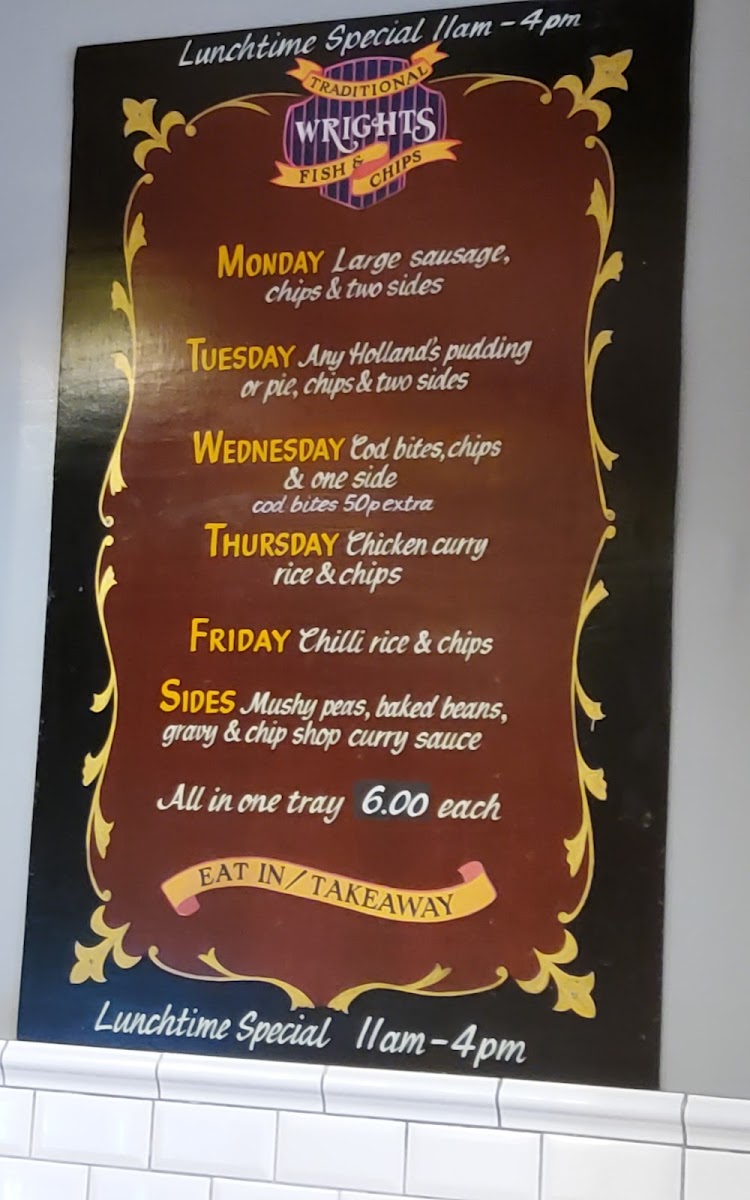 Lunchtime Special 11am - 4pm
TRADITIONAL
WRIGHTS
FISH & CHIPS
MONDAY Large sausage,
chips & two sides
TUESDAY Any Holland's pudding
or pie, chips & two sides
WEDNESDAY Cod bites, chips
& one side
cod bites 50p extra
THURSDAY Chicken curry
rice & chips
FRIDAY Chilli rice & chips
SIDES Mushy peas, baked beans,
gravy & chip shop curry sauce
All in one tray 6.00 each
EAT IN / TAKEAWAY
Lunchtime Special 11am - 4pm